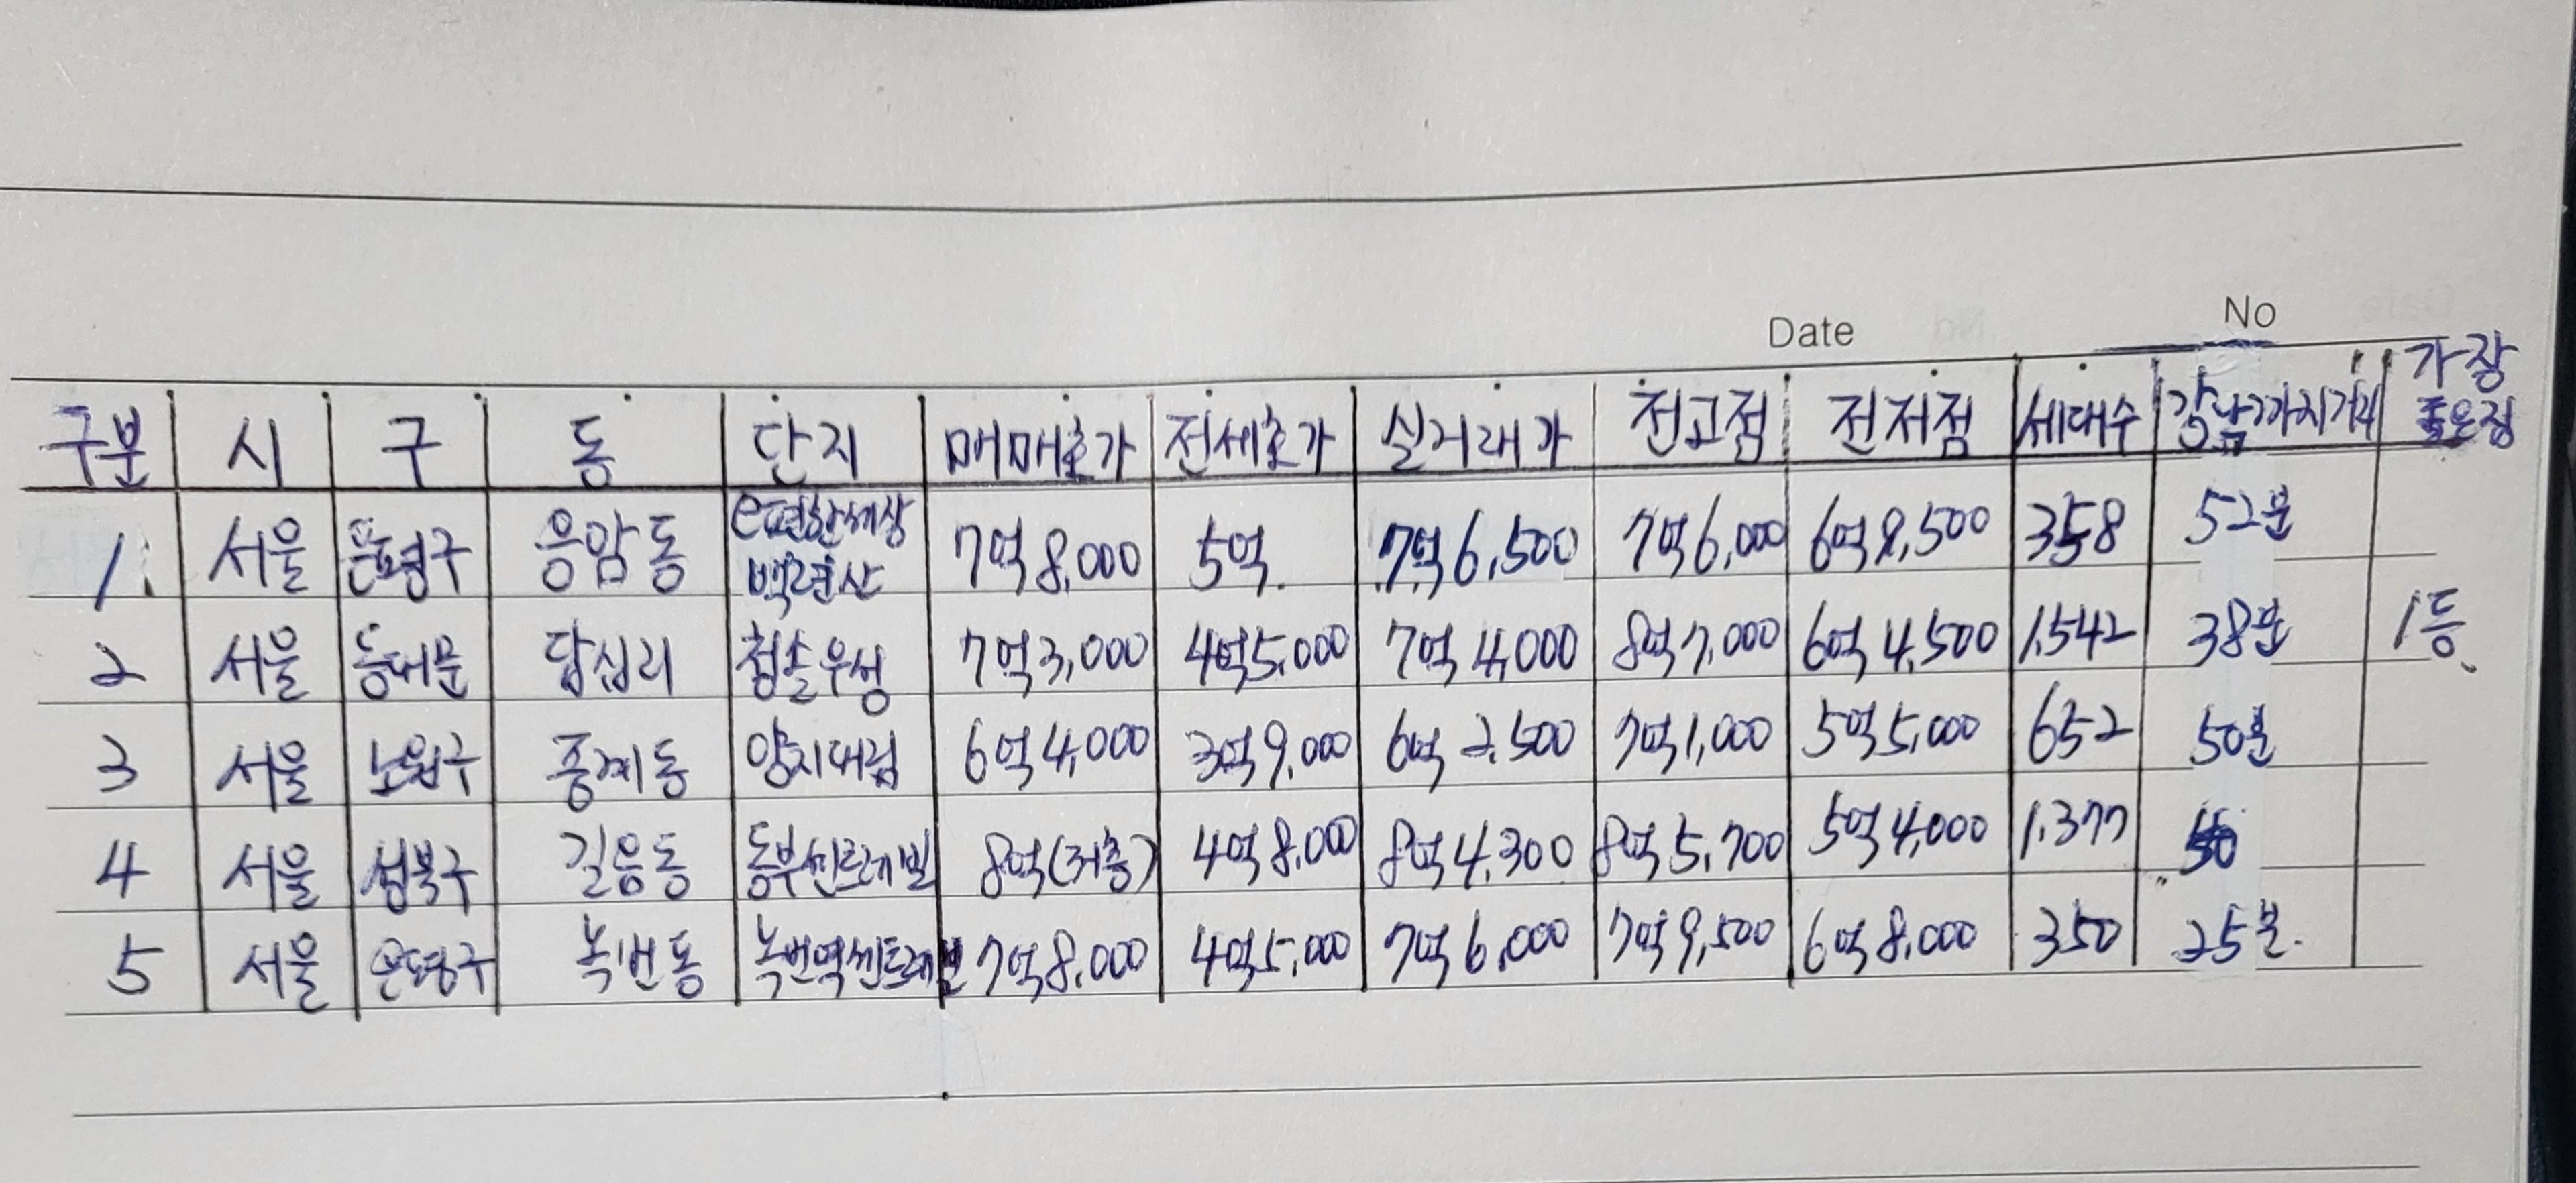 Date No
구분 시 구 동 단지 매매호가 전세호가 실거래가 전고점 전저점 세대수 강남까지거리 가장 좋은점
1. 서울 은평구 응암동 e편한세상 백련산 7억 8,000 5억. 7억 6,500 7억 6,000 6억 9,500 358 52분
2 서울 동대문 답십리 청솔우성 7억 3,000 4억 5,000 7억 4,000 8억 7,000 6억 4,500 1,542 38분 1등.
3 서울 노원구 중계동 양지대림 6억 4,000 3억 9,000 6억 2,500 7억 1,000 5억 5,000 652 50분
4 서울 성북구 길음동 동부센트레빌 8억(저층) 4억 8,000 8억 4,300 8억 5,700 5억 4,000 1,377
5 서울 은평구 녹번동 녹번역센트레빌 7억 8,000 4억 5,000 7억 6,000 7억 9,500 6억 8,000 350 25분.